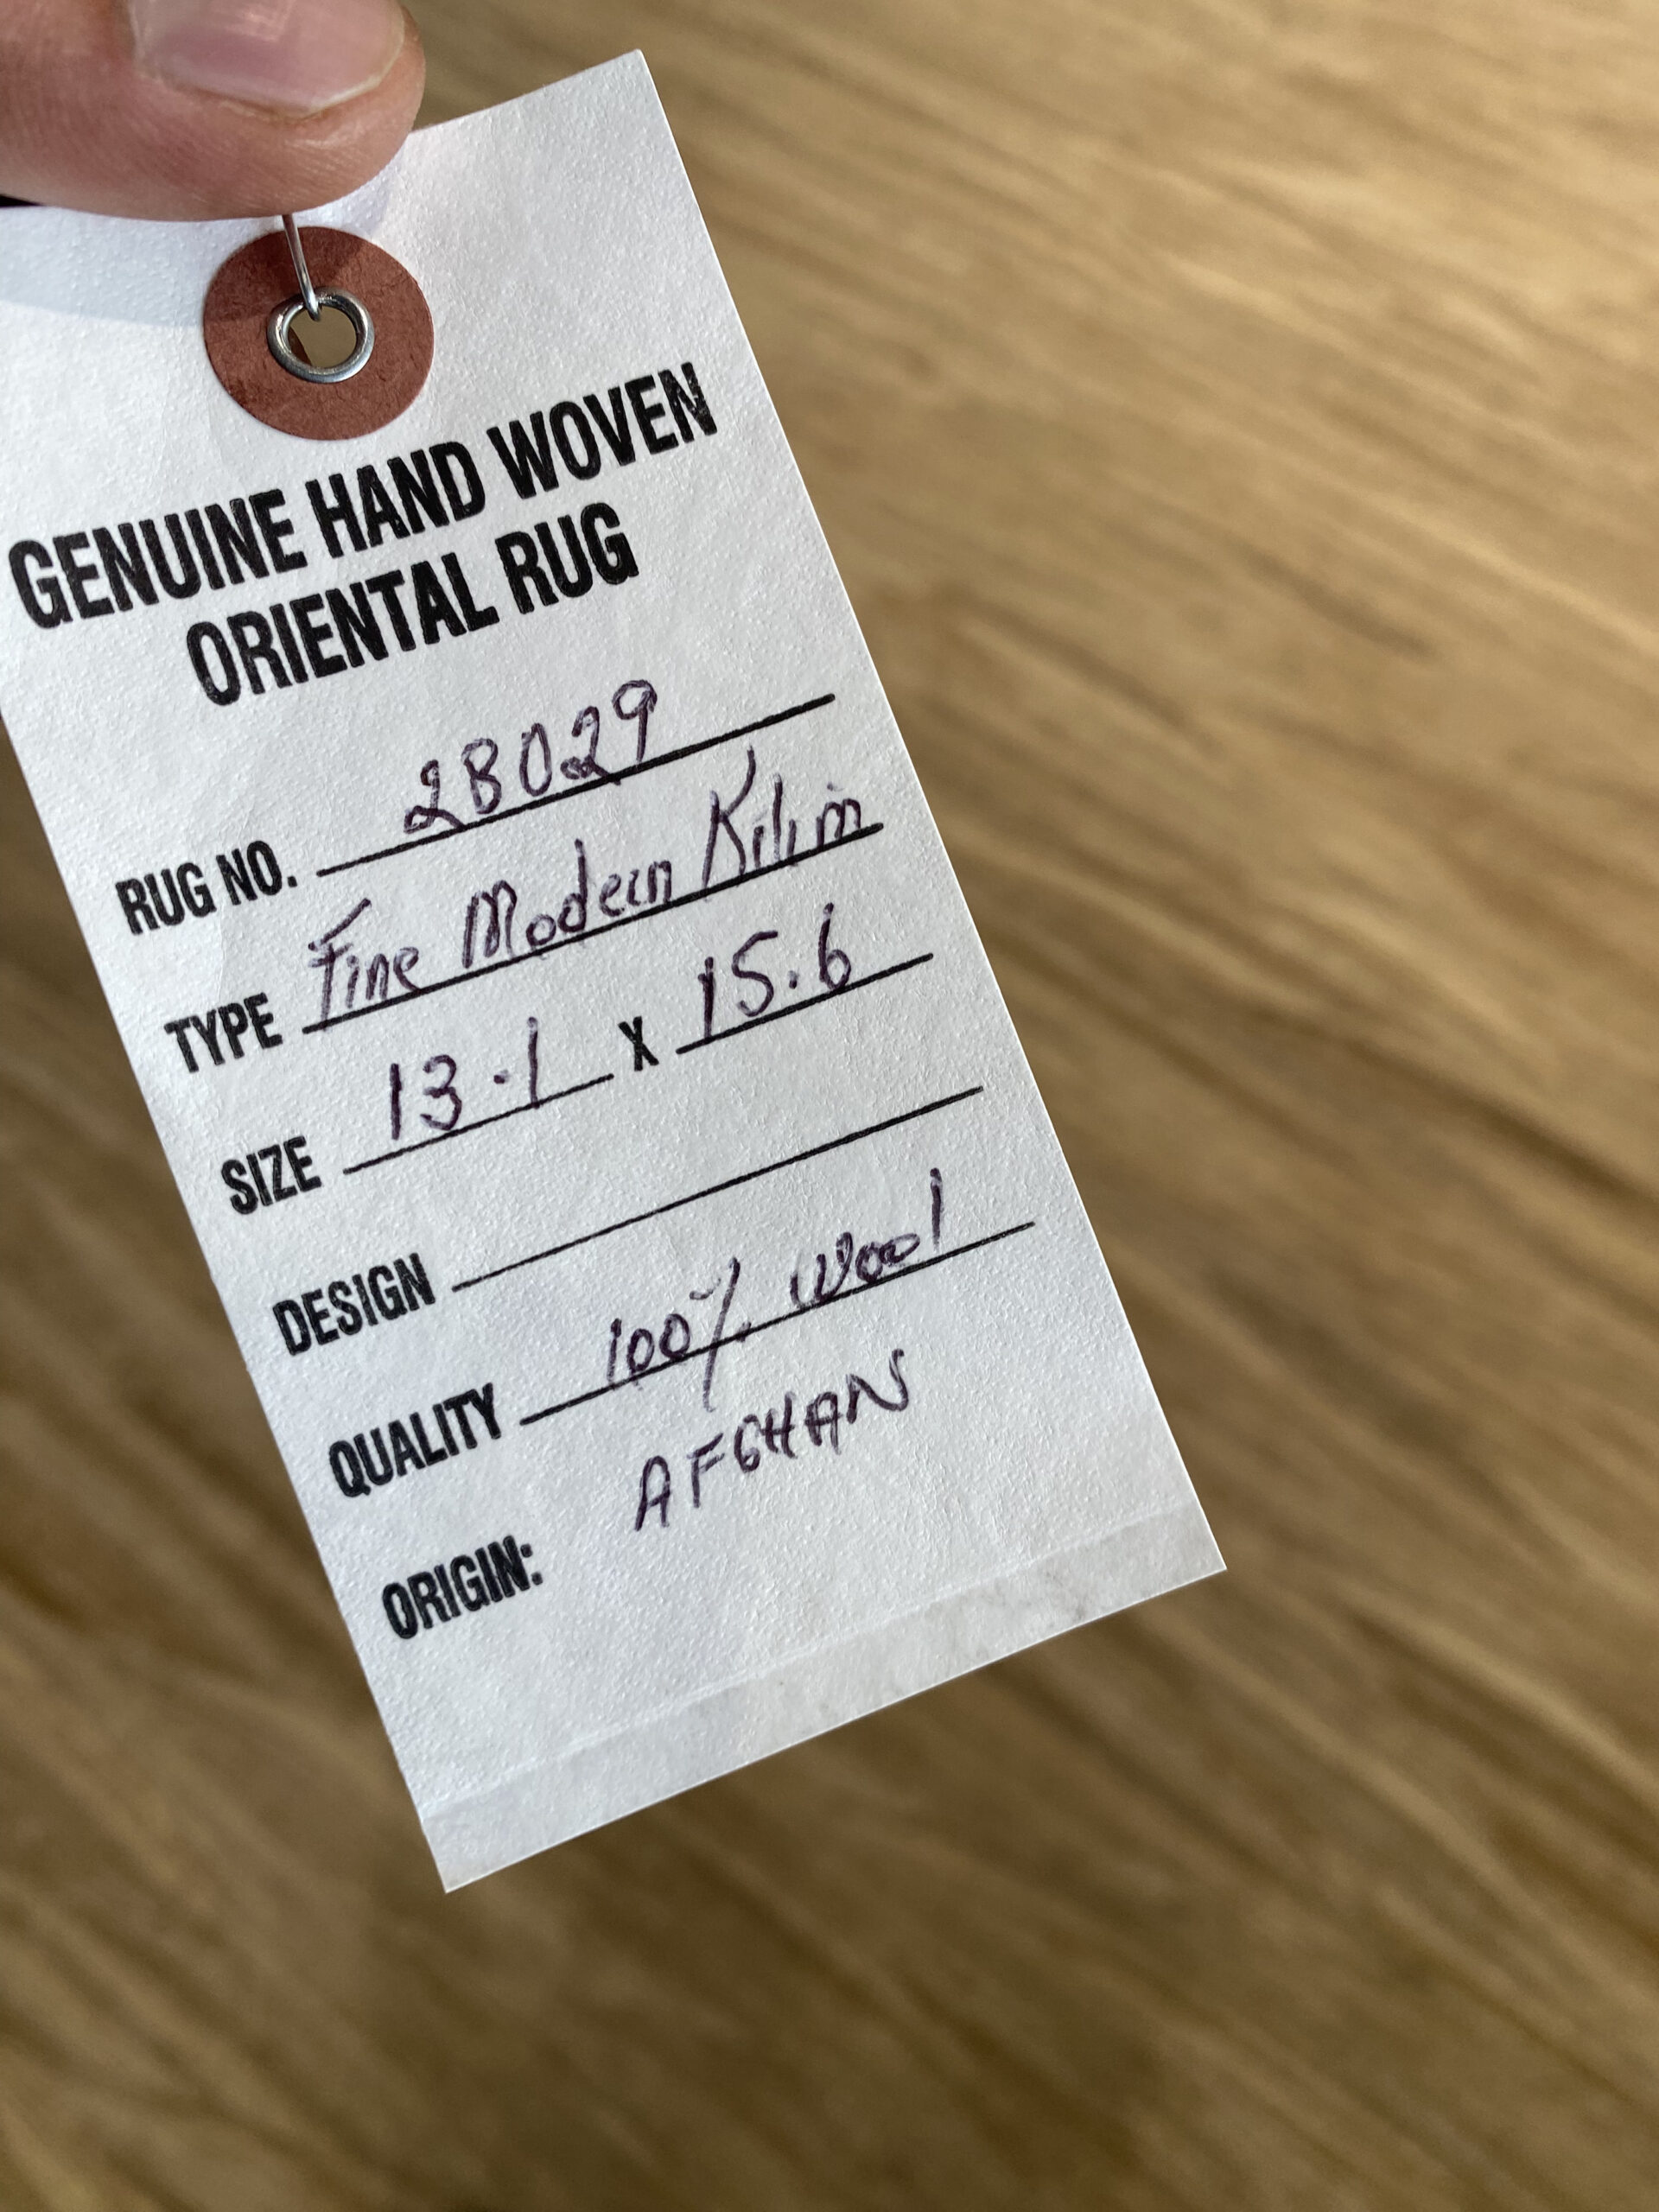 GENUINE HAND WOVEN
ORIENTAL RUG
RUG NO. 28029
TYPE Fine Modern Kilim
SIZE 13.1 X 15.6
DESIGN
QUALITY 100% Wool
ORIGIN: AFGHAN